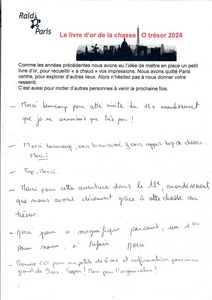 Raid Paris
Le livre d'or de la chasse O trésor 2024
Comme les années précédentes nous avons eu l'idée de mettre en place un petit
livre d'or, pour recueillir « à chaud » vos impressions. Nous avons quitté Paris
centre, pour explorer d'autres lieux. Alors n'hésitez pas à nous donner votre
ressenti.
C'est aussi pour inciter d'autres personnes à venir la prochaine fois.
- Merci beaucoup pour cette visite du arrondissement
que je ne connaissais pas très bien !
- Merci beaucoup, nous avons appris de choses.
Merci
- Top, Merci.
- Merci pour cette aventure dans le 18e, arrondissement
que nous avons découvert grâce à cette chasse au
trésor.
- Merci pour ce magnifique parcours,
pour nous, à refaire Merci
- pour un petit de 6 ans et
grand de 9 ans. Super ! Merci pour l'organisation !